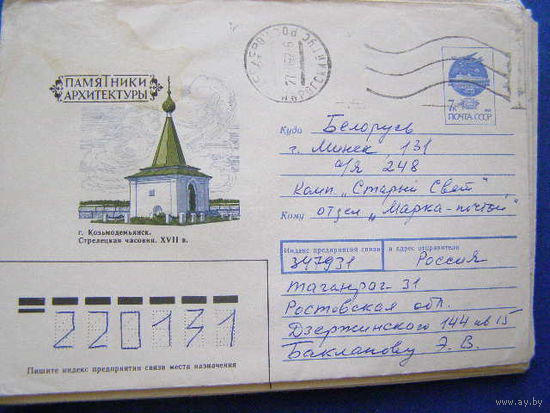 ПАМЯТНИКИ
АРХИТЕКТУРЫ
г. Козьмодемьянск.
Стрелецкая часовня. XVII в.
7к
ПОЧТА СССР
Куда Белорусь
г. Минск 131
а/я 248
Комп. „Старый Свет"
Кому отдел „Марка-почтой"
Индекс предприятия связи и адрес отправителя
347931 Россия
Таганрог-31
Ростовская обл.
Дзержинского 144 кв 15
Бакланову Э. В.
220131
Пишите индекс предприятия связи места назначения
www.ay.by